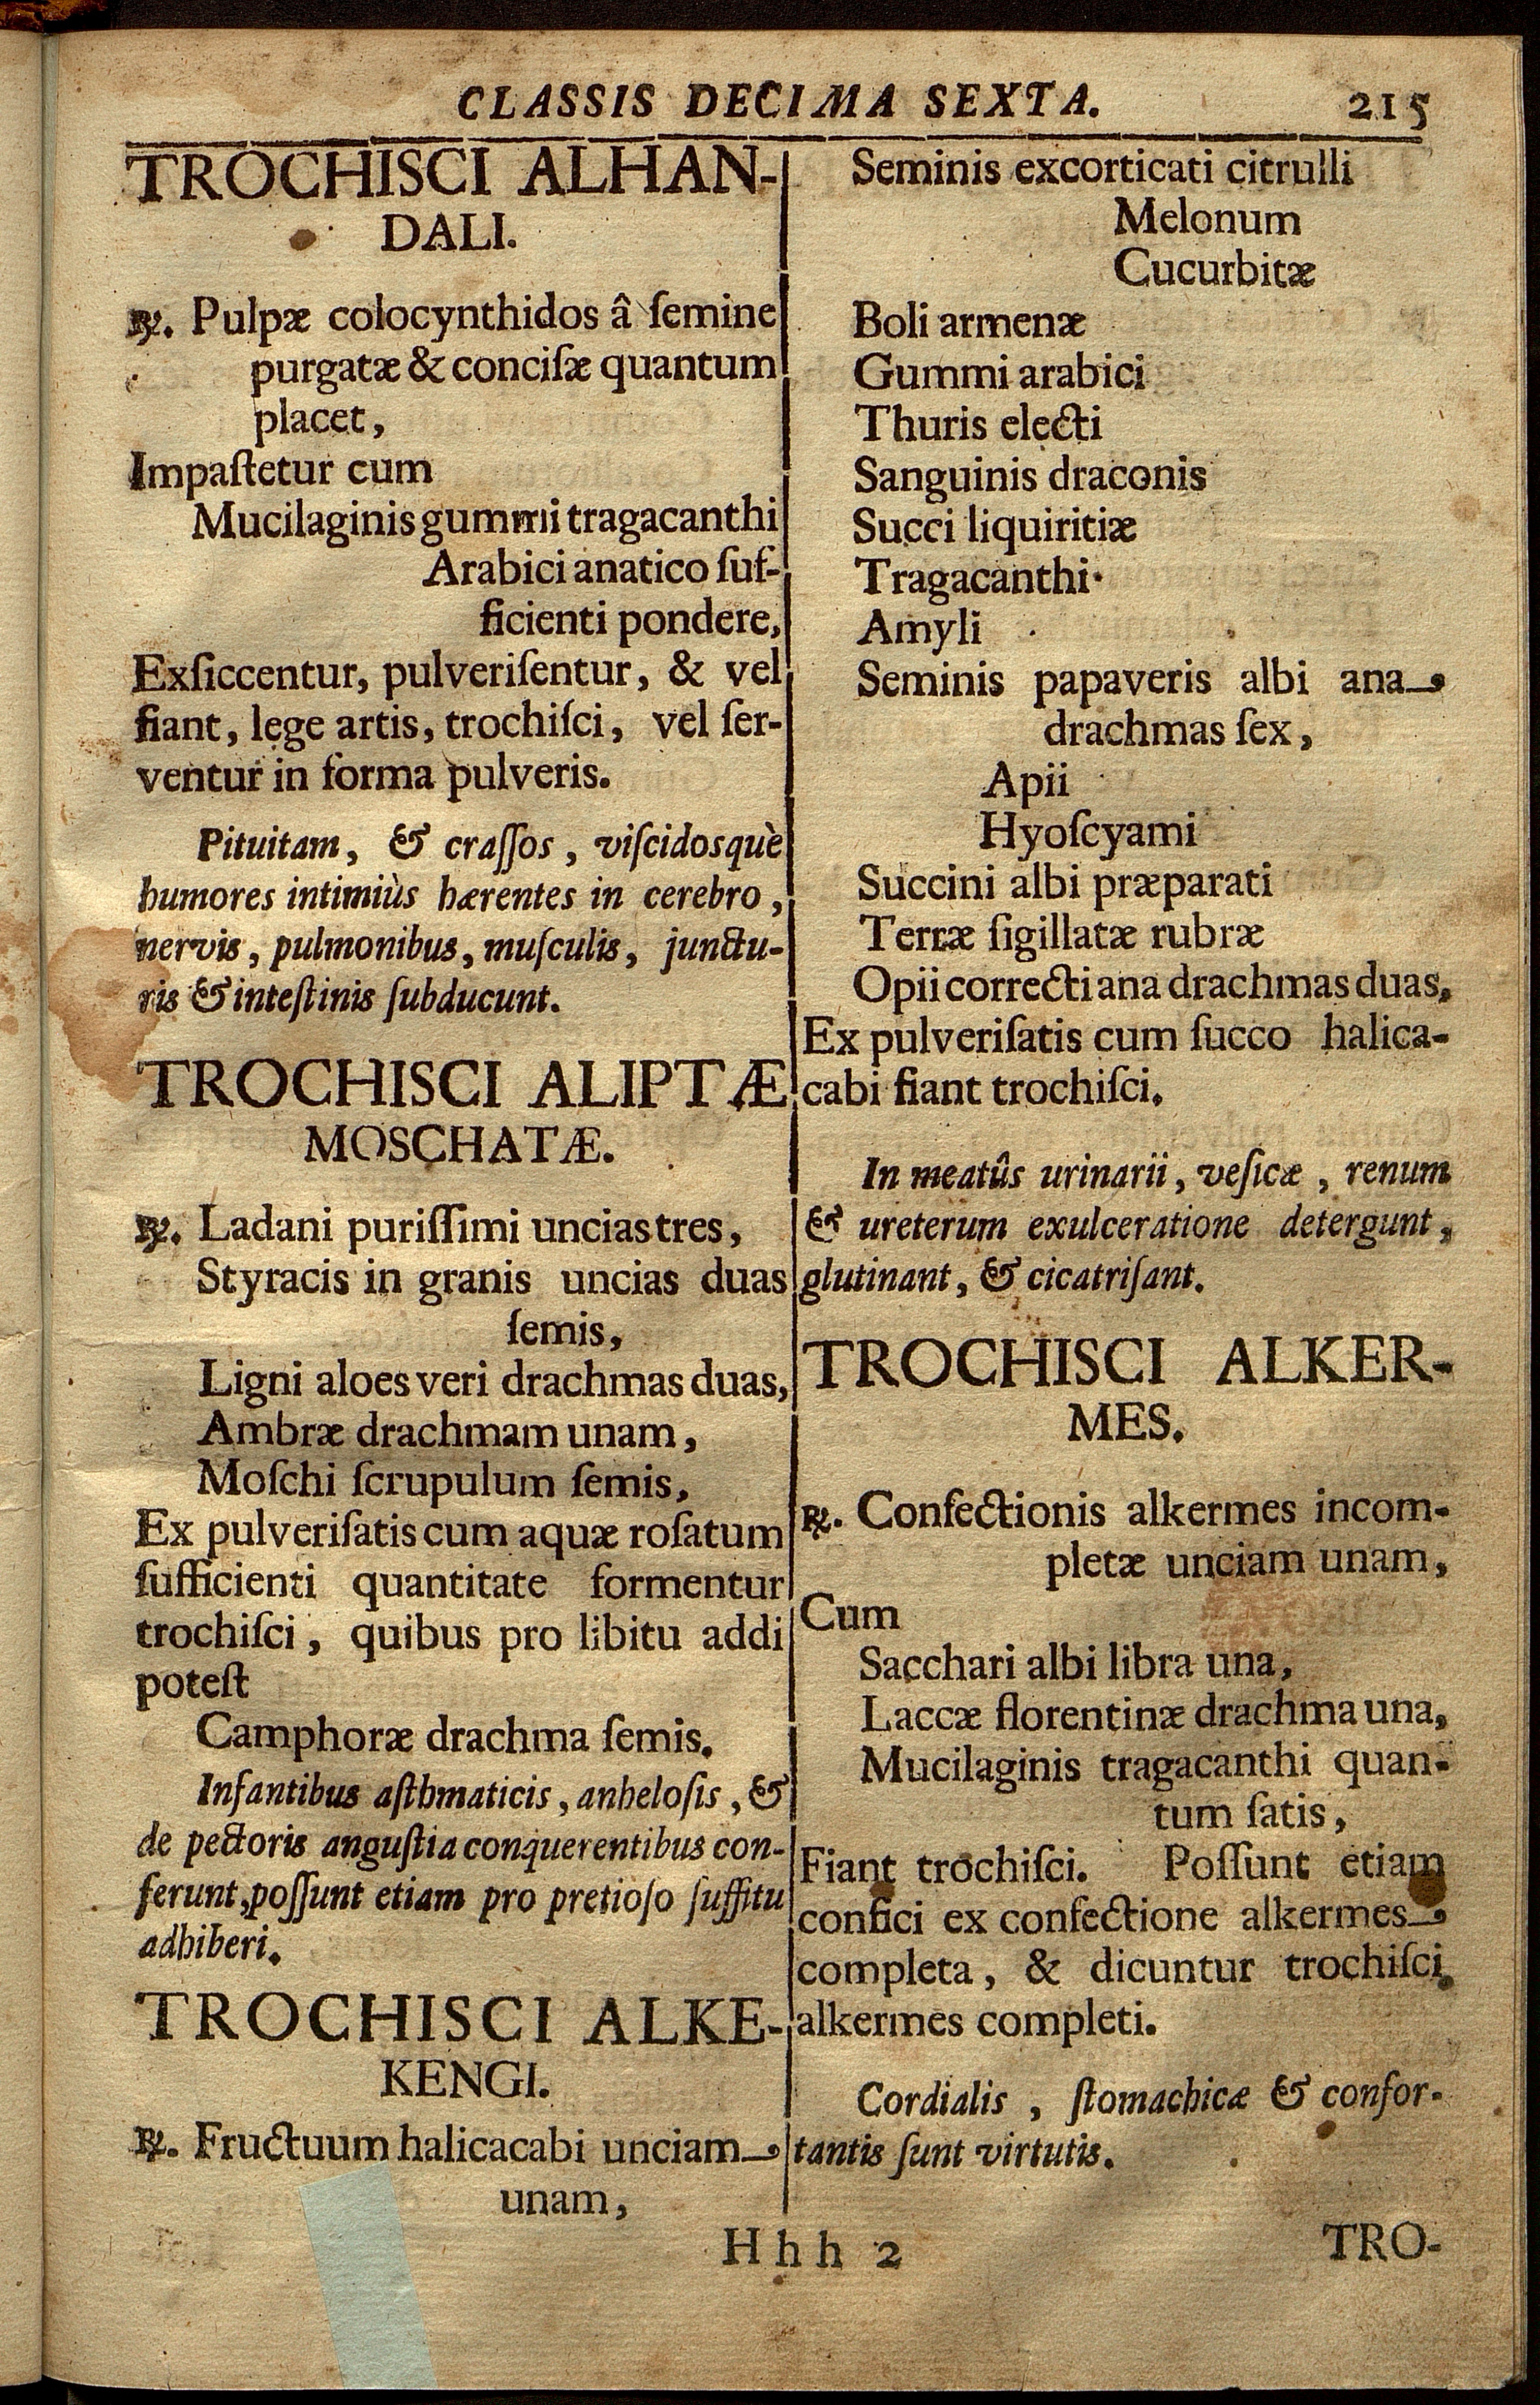 CLASSIS DECIMA SEXTA. 215
TROCHISCI ALHAN-
DALI.
℞. Pulpæ colocynthidos â ſemine
purgatæ & conciſæ quantum
placet,
Impaſtetur cum
Mucilaginis gummi tragacanthi
Arabici anatico ſuf-
ficienti pondere,
Exſiccentur, pulveriſentur, & vel
fiant, lege artis, trochiſci, vel ſer-
ventur in forma pulveris.
Pituitam, & craſſos, viſcidosquè
humores intimiùs hærentes in cerebro,
nervis, pulmonibus, muſculis, junctu-
ris & inteſtinis ſubducunt.
TROCHISCI ALIPTÆ
MOSCHATÆ.
℞. Ladani puriſſimi uncias tres,
Styracis in granis uncias duas
ſemis,
Ligni aloes veri drachmas duas,
Ambræ drachmam unam,
Moſchi ſcrupulum ſemis,
Ex pulveriſatis cum aquæ roſatum
ſufficienti quantitate formentur
trochiſci, quibus pro libitu addi
poteſt
Camphoræ drachma ſemis.
Infantibus aſthmaticis, anheloſis, &
de pectoris anguſtia conquerentibus con-
ferunt, poſſunt etiam pro pretioſo ſuffitu
adhiberi.
TROCHISCI ALKE-
KENGI.
℞. Fructuum halicacabi unciam
unam,
Seminis excorticati citrulli
Melonum
Cucurbitæ
Boli armenæ
Gummi arabici
Thuris electi
Sanguinis draconis
Succi liquiritiæ
Tragacanthi
Amyli
Seminis papaveris albi ana
drachmas ſex,
Apii
Hyoſcyami
Succini albi præparati
Terræ ſigillatæ rubræ
Opii correcti ana drachmas duas,
Ex pulveriſatis cum ſucco halica-
cabi fiant trochiſci.
In meatûs urinarii, veſicæ, renum
& ureterum exulceratione detergunt,
glutinant, & cicatriſant.
TROCHISCI ALKER-
MES.
℞. Confectionis alkermes incom-
pletæ unciam unam,
Cum
Sacchari albi libra una,
Laccæ florentinæ drachma una,
Mucilaginis tragacanthi quan-
tum ſatis,
Fiant trochiſci. Poſſunt etiam
confici ex confectione alkermes
completa, & dicuntur trochiſci
alkermes completi.
Cordialis, ſtomachicæ & confor-
tantis ſunt virtutis.
Hhh 2 TRO-